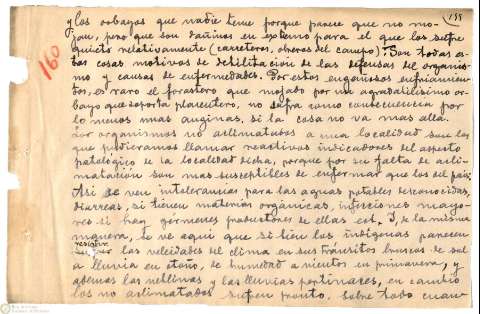 155
160
y los orbayos que nadie teme porque parece que no mo-
jan, pero que son dañinos en extremo para el que los sufre
quieto relativamente (careteros, obreros del campo). Son todas es-
tas cosas motivos de debilitación de las defensas del organis-
mo y causas de enfermedades. Por estos engañosos enfriamien-
tos, es raro el forastero que mojado por un agradabilísimo or-
bayo que soporta placentero, no sufra como consecuencia por
lo menos unas anginas, si la cosa no va mas allá.
Los organismos no aclimatados a una localidad son los
que pudieramos llamar reactivos indicadores del aspecto
patológico de la localidad dicha, porque por su falta de acli-
matación son mas susceptibles de enfermar que los del pais.
Asi se ven intolerancias para las aguas potables desconocidas,
diarreas, si tienen materias orgánicas, infecciones mayo-
res si hay gérmenes productores de ellas est. Y, de la misma
manera, se ve aqui que si bien los indígenas parecen
resistir
las veleidades del clima en sus tránsitos bruscos de sol
a lluvia en otoño, de humedad a vientos en primavera, y
ademas las neblinas y las lluvias pertinaces, en cambio
los no aclimatados sufren pronto. Sobre todo cuan-